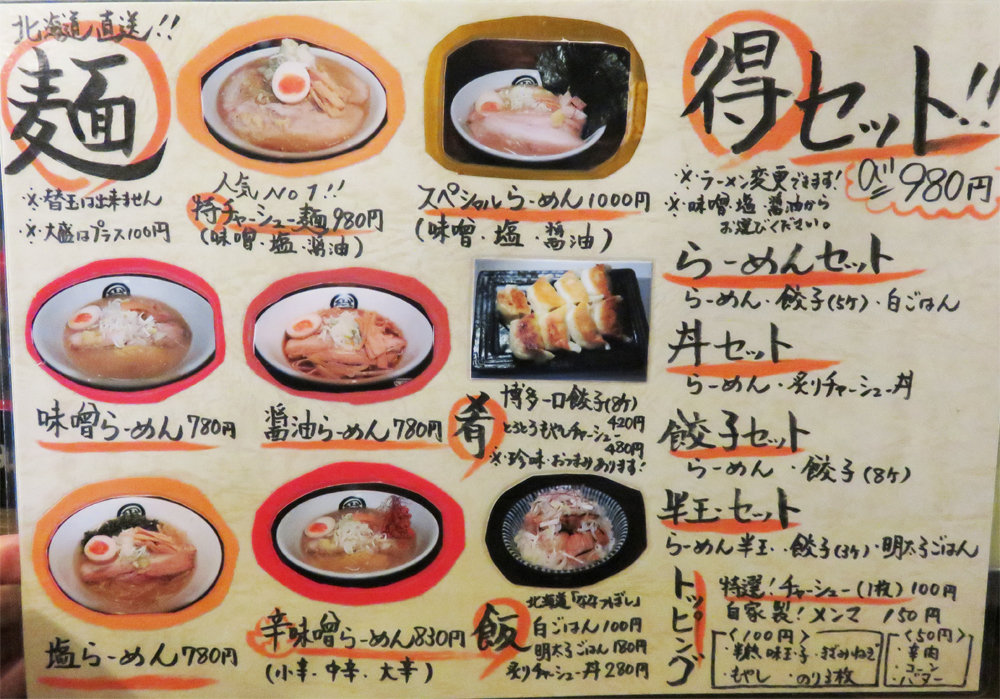 北海道直送!!
麺
※替玉は出来ません
※大盛はプラス100円
人気No1!!
特チャーシュー麺 980円
(味噌・塩・醤油)
スペシャルらーめん 1000円
(味噌・塩・醤油)
味噌らーめん 780円
醤油らーめん 780円
塩らーめん 780円
辛味噌らーめん 830円
(小辛・中辛・大辛)
肴
博多一口餃子(8ヶ)
420円
とろとろもやしチャーシュー
480円
※珍味・おつまみあります!
飯
北海道「ななつぼし」
白ごはん 100円
明太子ごはん 180円
炙りチャーシュー丼 280円
得セット!!
※ラーメン変更できます!
※味噌・塩・醤油から
お選びください。
980円
らーめんセット
らーめん・餃子(5ヶ)・白ごはん
丼セット
らーめん・炙りチャーシュー丼
餃子セット
らーめん・餃子(8ヶ)
半玉セット
らーめん半玉・餃子(3ヶ)・明太子ごはん
トッピング
特選!チャーシュー(1枚) 100円
自家製!メンマ 150円
<100円>
・半熟味玉子・きざみねぎ
・もやし ・のり3枚
<50円>
・辛肉
・コーン
・バター